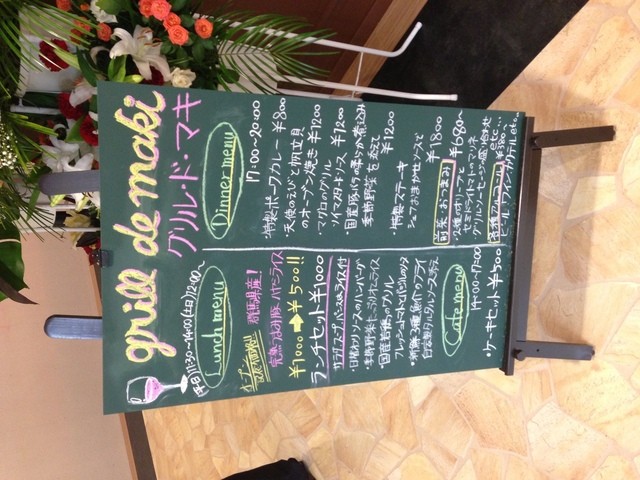 grill de maki
グリル・ド・マキ
平日/11:30~14:00(土日/12:00~)
Lunch menu
群馬県産!
¥1000→¥500!!
ランチセット¥1000
サラダ、スープ、パンorライス付
・日替わりソースのハンバーグ
・季節野菜たっぷりオムライス
・国産若鶏のグリル
フレッシュトマトとバジルのソース
・新鮮3種魚介のフライ
自家製タルタルソース添え
Cafe menu
14:00~17:00
・ケーキセット¥500
Dinner menu
17:00~20:00
・特製ポークカレー ¥800
・天使のえびと帆立貝
のオーブン焼き ¥1200
・マグロのグリル
ソイマスタードソース ¥1200
・国産豚バラの柔らか煮込み
季節野菜を添えて
¥1200
・特製ステーキ
シェフおまかせソースで
¥1800
前菜、おつまみ ¥680~
・2種のオリーブと
セミドライトマトのマリネ
・グリルソーセージの盛り合わせ
etc…
各種アルコール ¥380~
ビール、ワイン、カクテル etc…